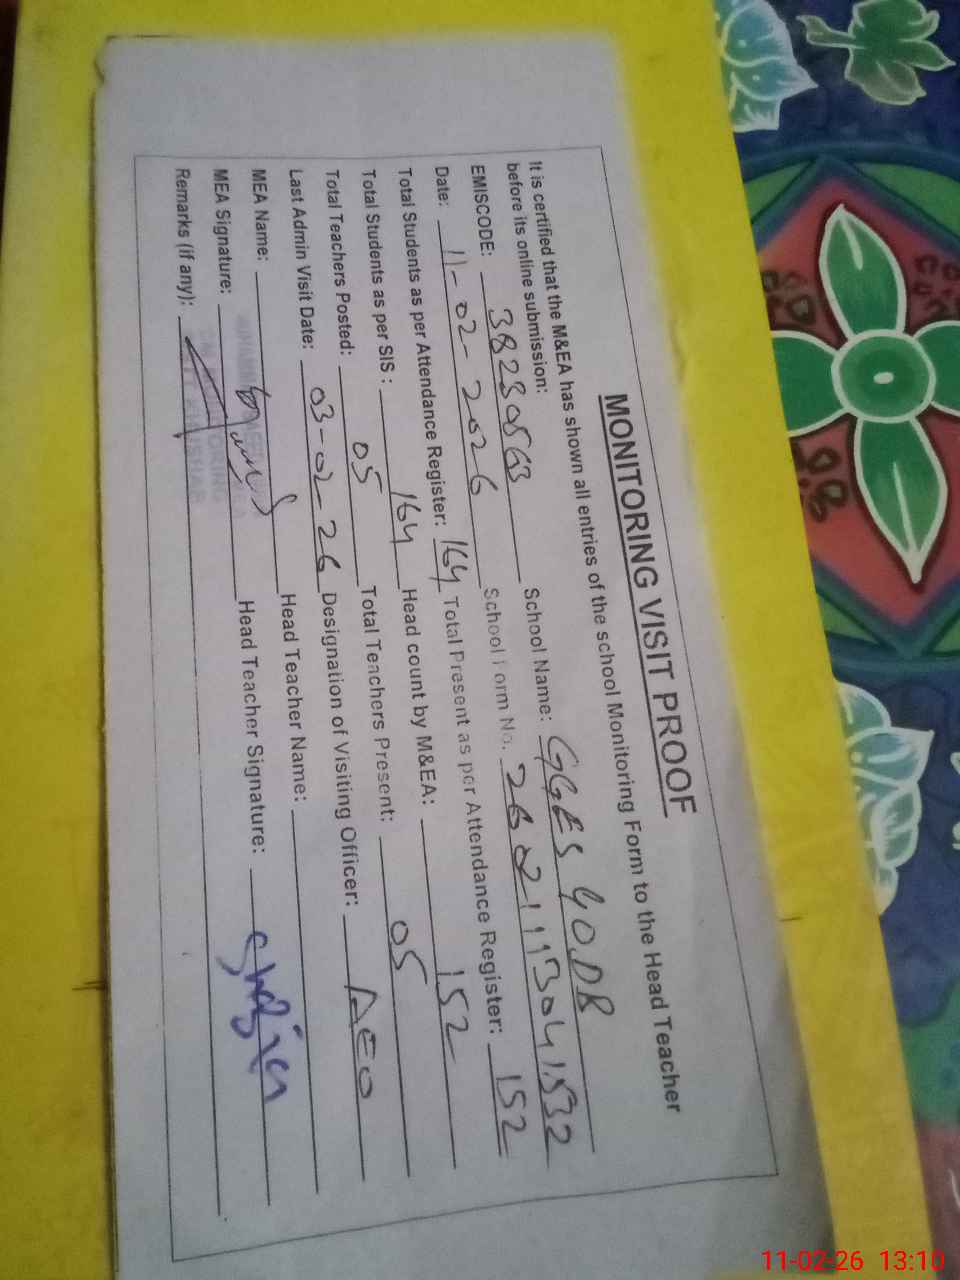 MONITORING VISIT PROOF
It is certified that the M&EA has shown all entries of the school Monitoring Form to the Head Teacher
before its online submission:
EMISCODE: 38230563 School Name: GGES 90.DB
Date: 11-02-2026 School Form No. 26021113041532
Total Students as per Attendance Register: 164 Total Present as per Attendance Register: 152
Total Students as per SIS: 164 Head count by M&EA: 152
Total Teachers Posted: 05 Total Teachers Present: 05
Last Admin Visit Date: 03-02-26 Designation of Visiting Officer: AEO
MEA Name: Head Teacher Name:
MEA Signature: Head Teacher Signature:
Remarks (if any):
11-02-26 13:10